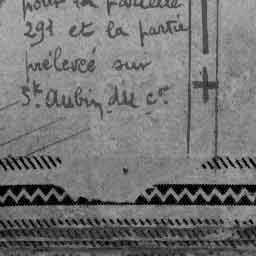 pour la parcelle
291 et la partie
prélevée sur
St. Aubin du Cer